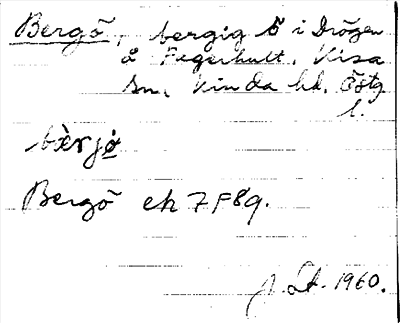 Bergö, bergig ö i Drögen
å Fegerhult, Kisa
sn, Kinda hd. Östg
l.
bærjø
Bergö ek 7F8g.
1960.